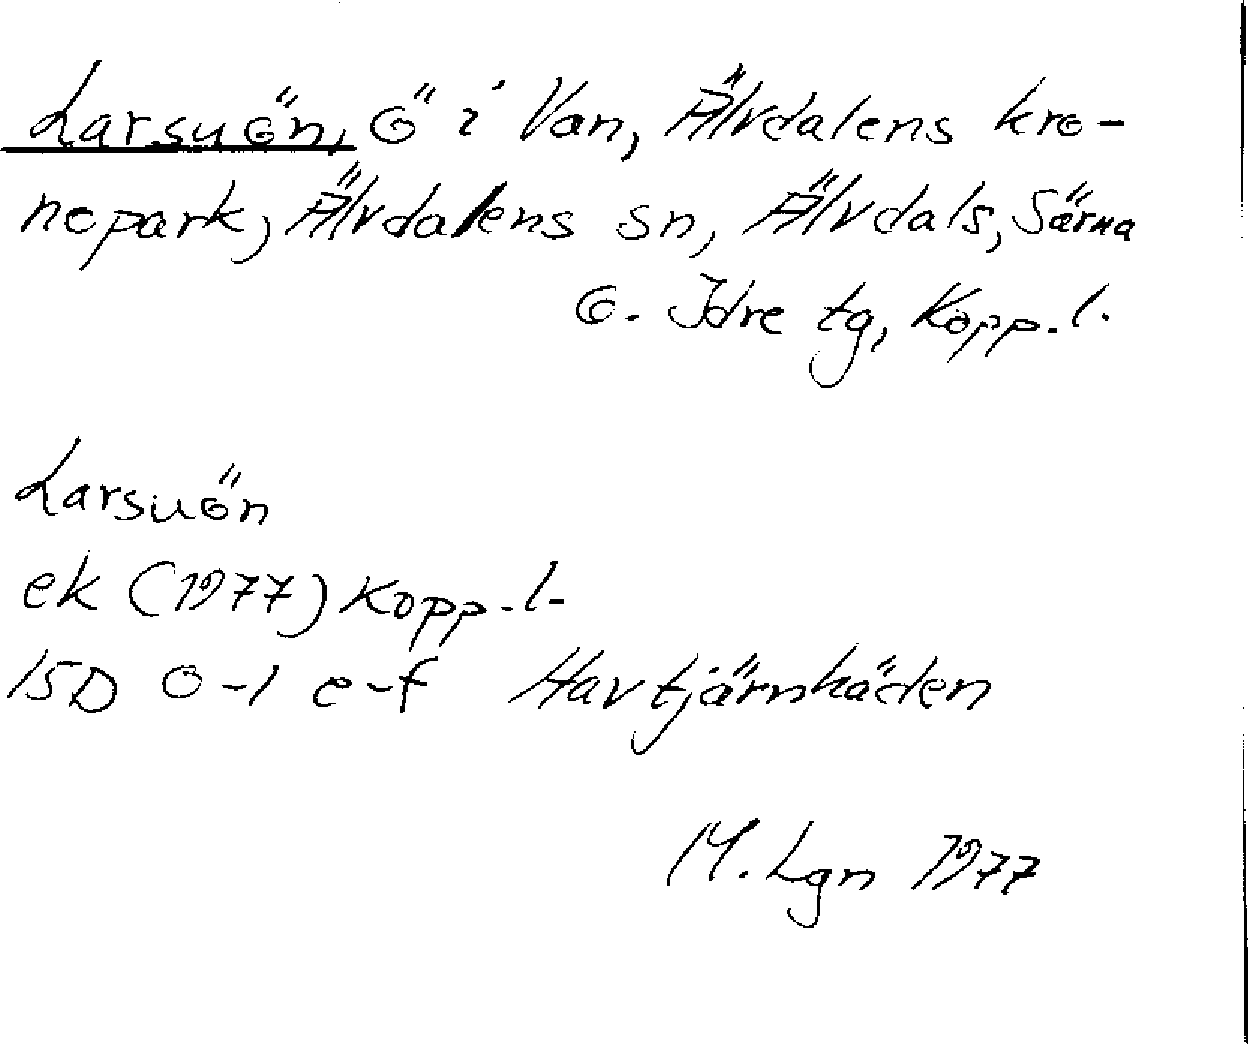 Larsuön, ö i Van, Älvdalens kro-
nopark, Älvdalens sn, Älvdals, Särna
o. Idre tg, Kopp. l.
Larsuön
ek (1977) Kopp. l.
15D 0-1 e-f Havtjärnhäden
M. Lgn 1977